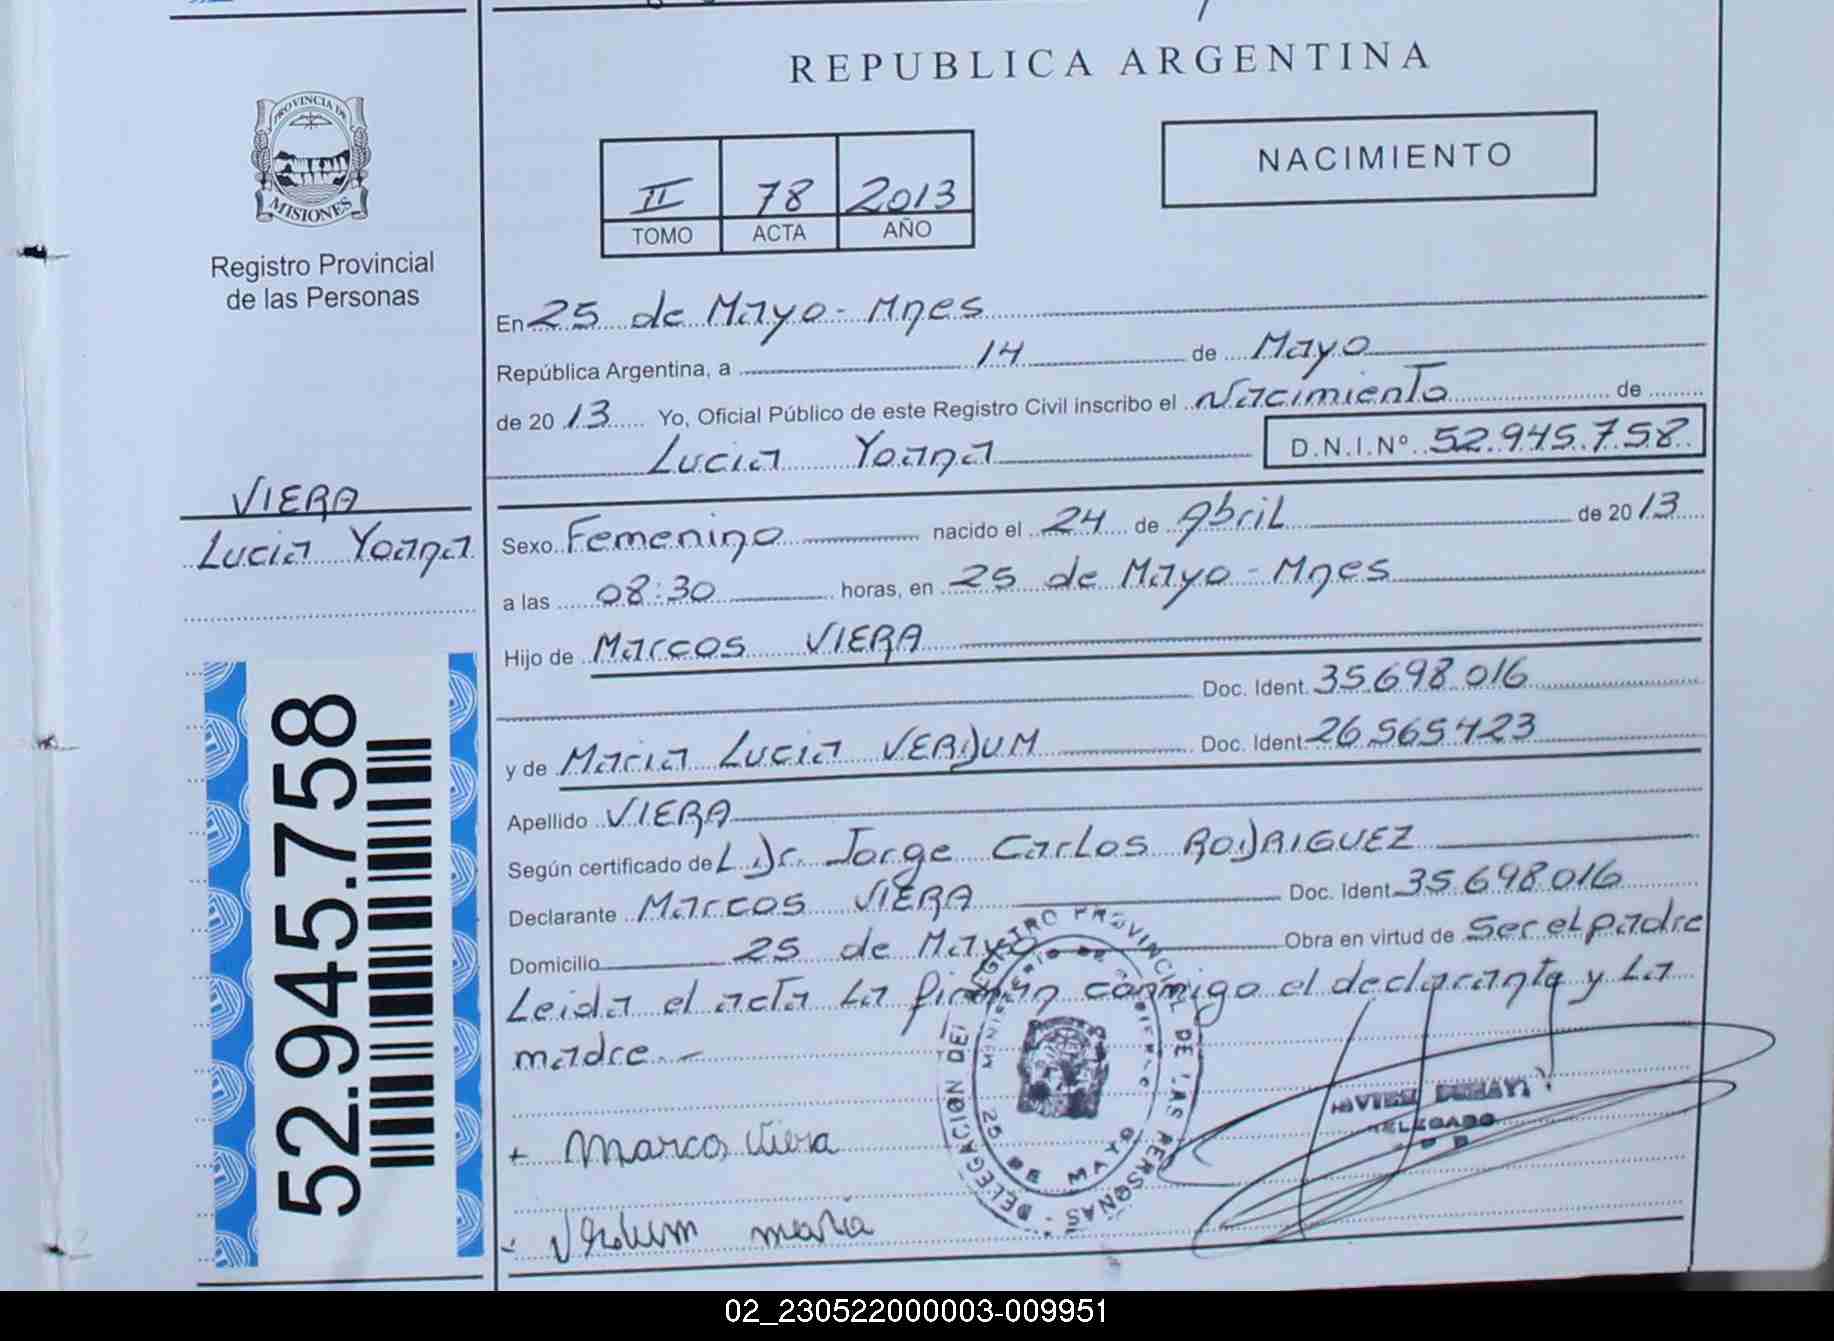 REPUBLICA ARGENTINA
PROVINCIA DE
MISIONES
Registro Provincial
de las Personas
NACIMIENTO
II 78 2013
TOMO ACTA AÑO
En 25 de Mayo - Mnes
República Argentina, a 14 de Mayo
de 2013 Yo, Oficial Público de este Registro Civil inscribo el Nacimiento de
Lucia Yoana D.N.I.Nº 52.945.758
VIERA
Lucia Yoana
Sexo Femenino nacido el 24 de Abril de 2013
a las 08:30 horas, en 25 de Mayo - Mnes
Hijo de Marcos VIERA
Doc. Ident. 35698016
y de Maria Lucia VERDUM Doc. Ident. 26565423
Apellido VIERA
Según certificado de L Dr. Jorge Carlos RODRIGUEZ
Declarante Marcos VIERA Doc. Ident. 35698016
Domicilio 25 de Mayo Obra en virtud de Ser el padre
Leida el acta La firman conmigo el declarante y La
madre.-
52.945.758
DELEGACION DEL REGISTRO PROVINCIAL DE LAS PERSONAS
MINISTERIO DE GOBIERNO
25 DE MAYO
DELEGADO
+ Marcos Viera
Verdum maria
02_230522000003-009951